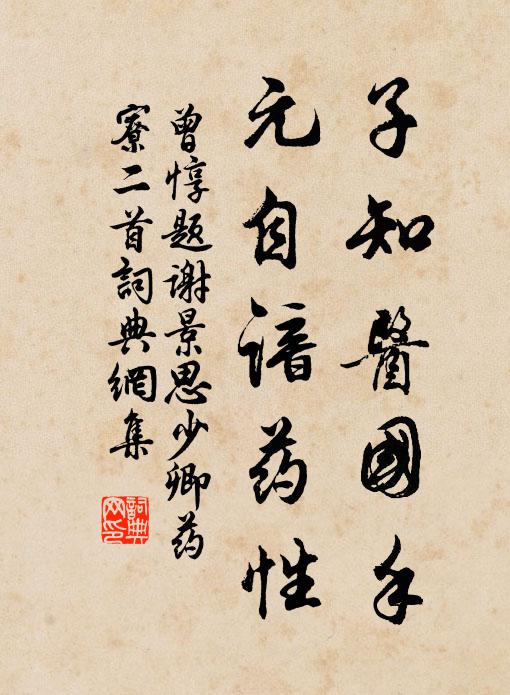 子知醫國手
元自諳药性
曾惇题谢景思少卿药
寮二首詞典網集
詞典网印